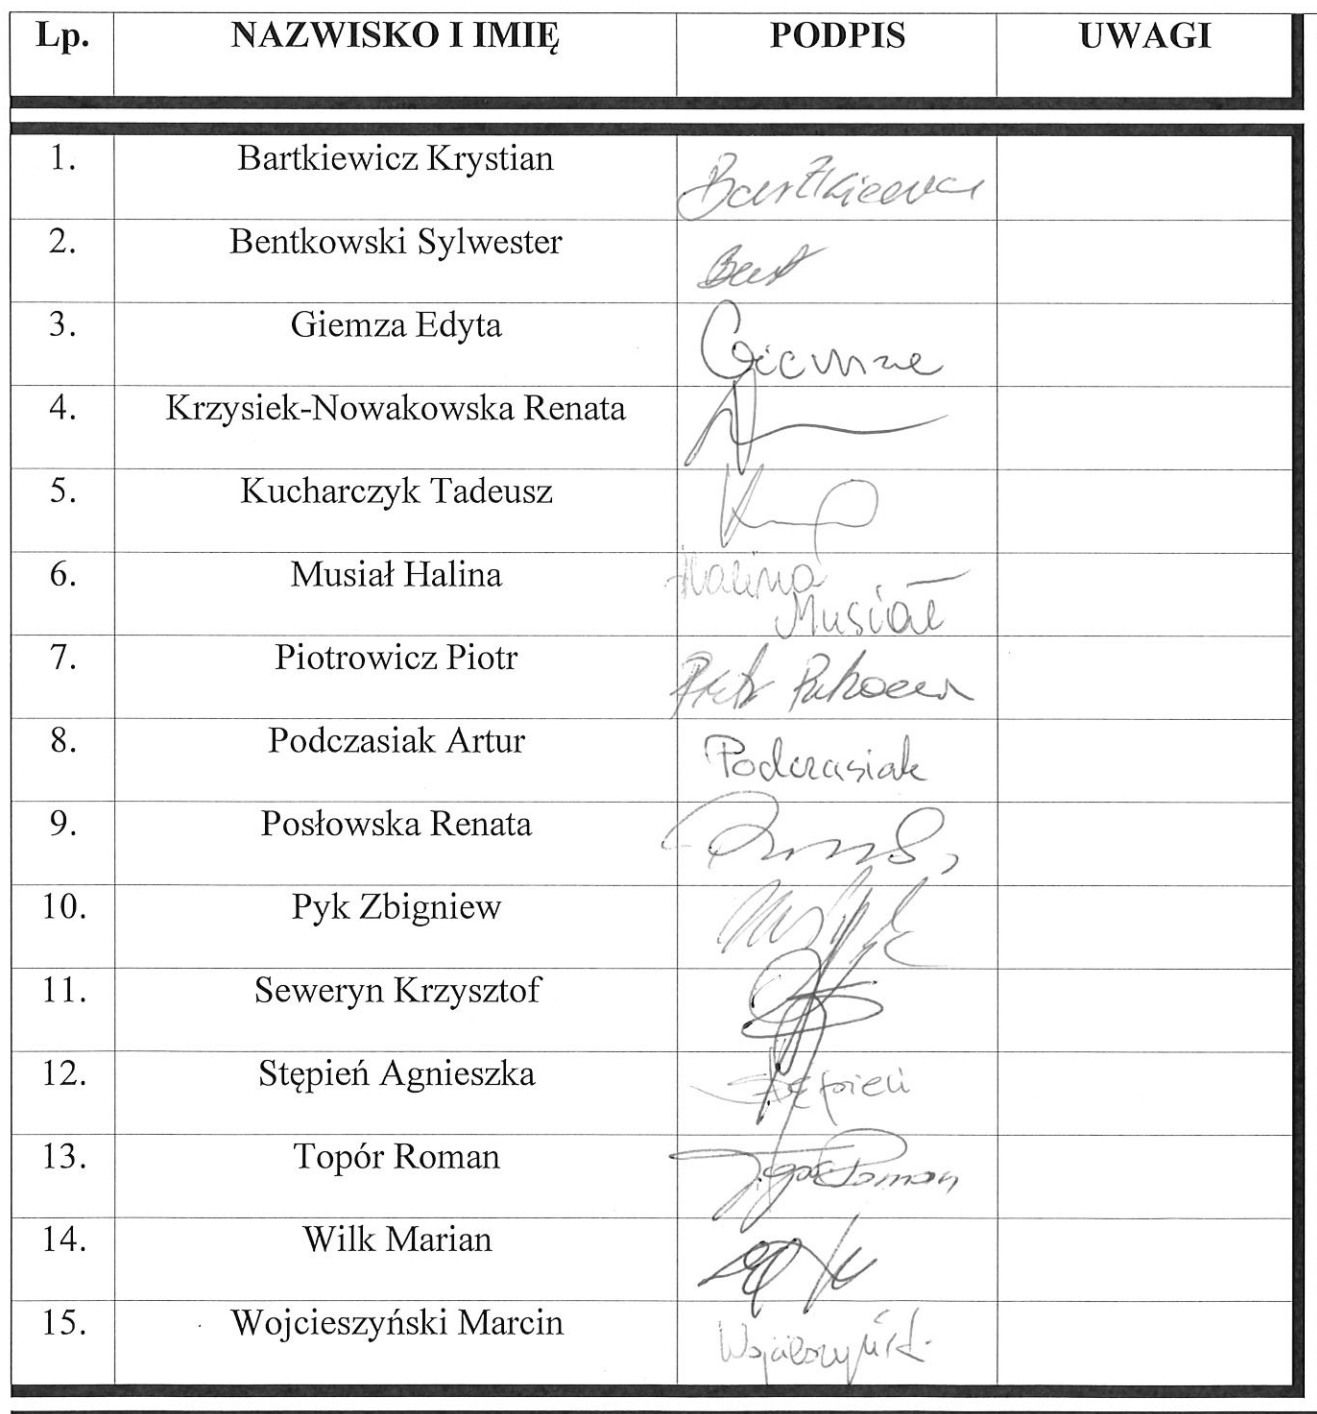 Lp. NAZWISKO I IMIĘ PODPIS UWAGI
1. Bartkiewicz Krystian Bartkiewicz
2. Bentkowski Sylwester Bent
3. Giemza Edyta Giemza
4. Krzysiek-Nowakowska Renata
5. Kucharczyk Tadeusz
6. Musiał Halina Halina Musiał
7. Piotrowicz Piotr Piotr
8. Podczasiak Artur Podczasiak
9. Posłowska Renata
10. Pyk Zbigniew
11. Seweryn Krzysztof
12. Stępień Agnieszka Stępień
13. Topór Roman Topór Roman
14. Wilk Marian
15. Wojcieszyński Marcin